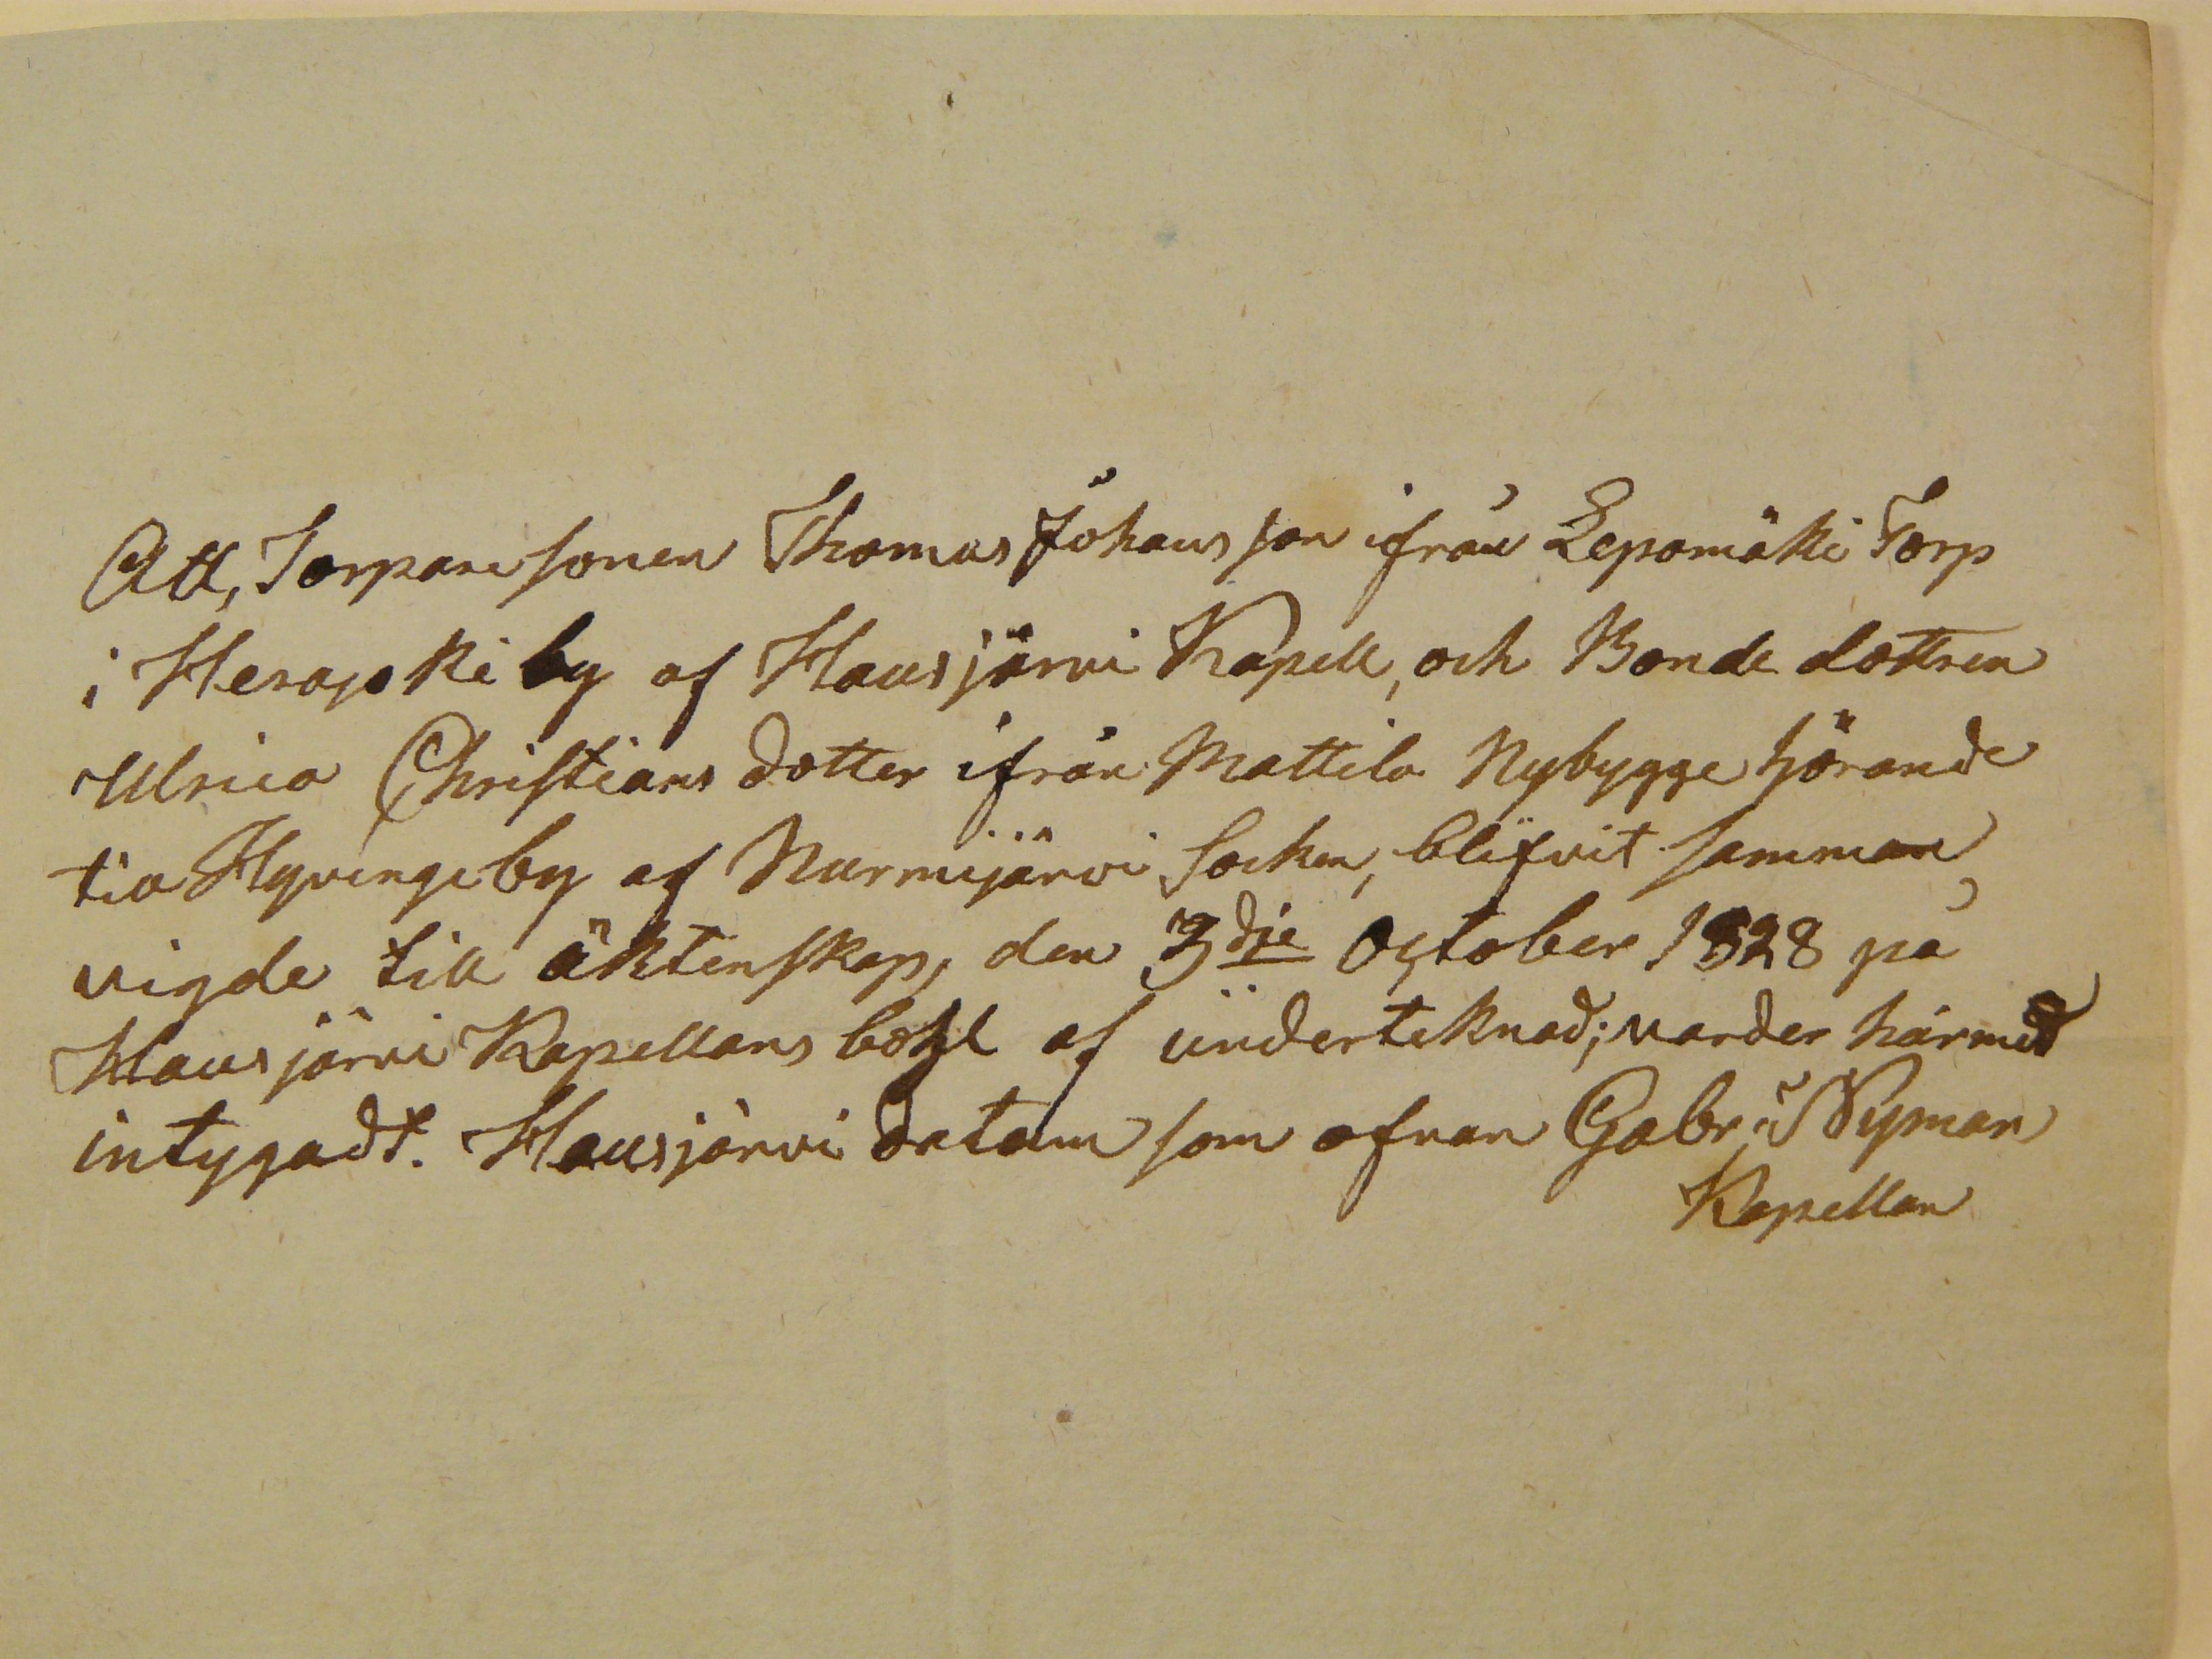 Att, Torpare sonen Thomas Johansson ifrån Lepomäki Torp
i Herajoki by af Hausjärvi Kapell, och Bonde dottren
Ulrica Christians dotter ifrån Mattila Nybygge hörande
till Hyvinge by af Nurmijärvi Socken, blifvit samman
vigde till äktenskap, den 3die October 1828 på
Hausjärvi Kapellans bohl af underteknad; varder härmed
intygadt. Hausjärvi datum som ofvan Gabr: Nyman
Kapellan